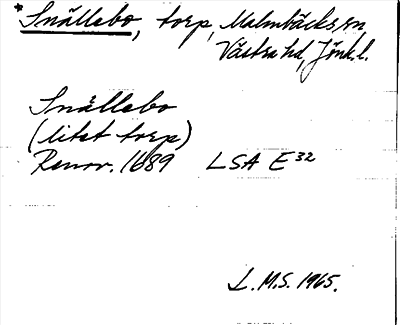 *Snällebo, torp, Malmbäcks sn
Västra hd, Jönk. l.
Snällebo
(litet torp)
Renov. 1689 LSA E32
L.M.S. 1965.